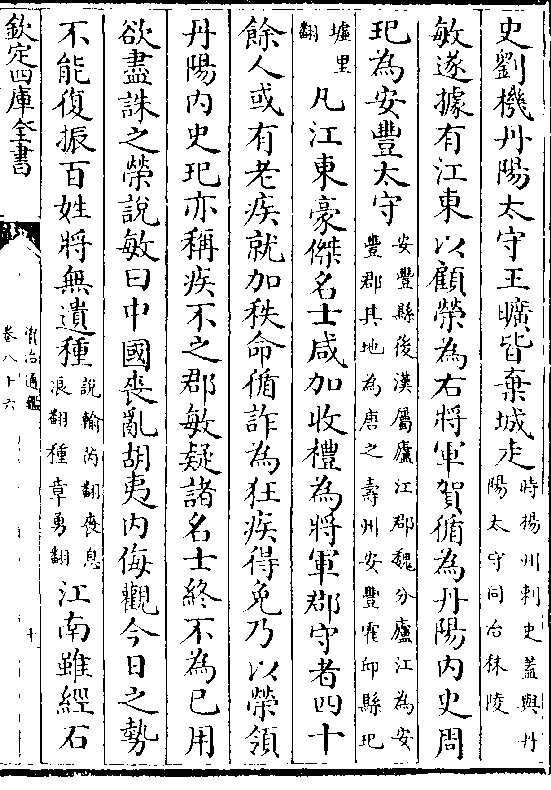 史劉機丹陽太守王曠皆棄城走時楊州刺史蓋與丹陽太守同治秣陵
敏遂據有江東以顧榮為右將軍賀循為丹陽内史周
玘為安豐太守安豐縣後漢屬廬江郡魏分廬江為安豐郡其地為唐之壽州安豐霍邱縣玘
墟里翻凡江東豪傑名士咸加收禮為將軍郡守者四十
餘人或有老疾就加秩命循詐為狂疾得免乃以榮領
丹陽内史玘亦稱疾不之郡敏疑諸名士終不為已用
欲盡誅之榮說敏曰中國喪亂胡夷内侮觀今日之勢
不能復振百姓將無遺種說輸芮翻喪息浪翻種章勇翻江南雖經石
欽定四庫全書
資治通鑑
卷八十六
十